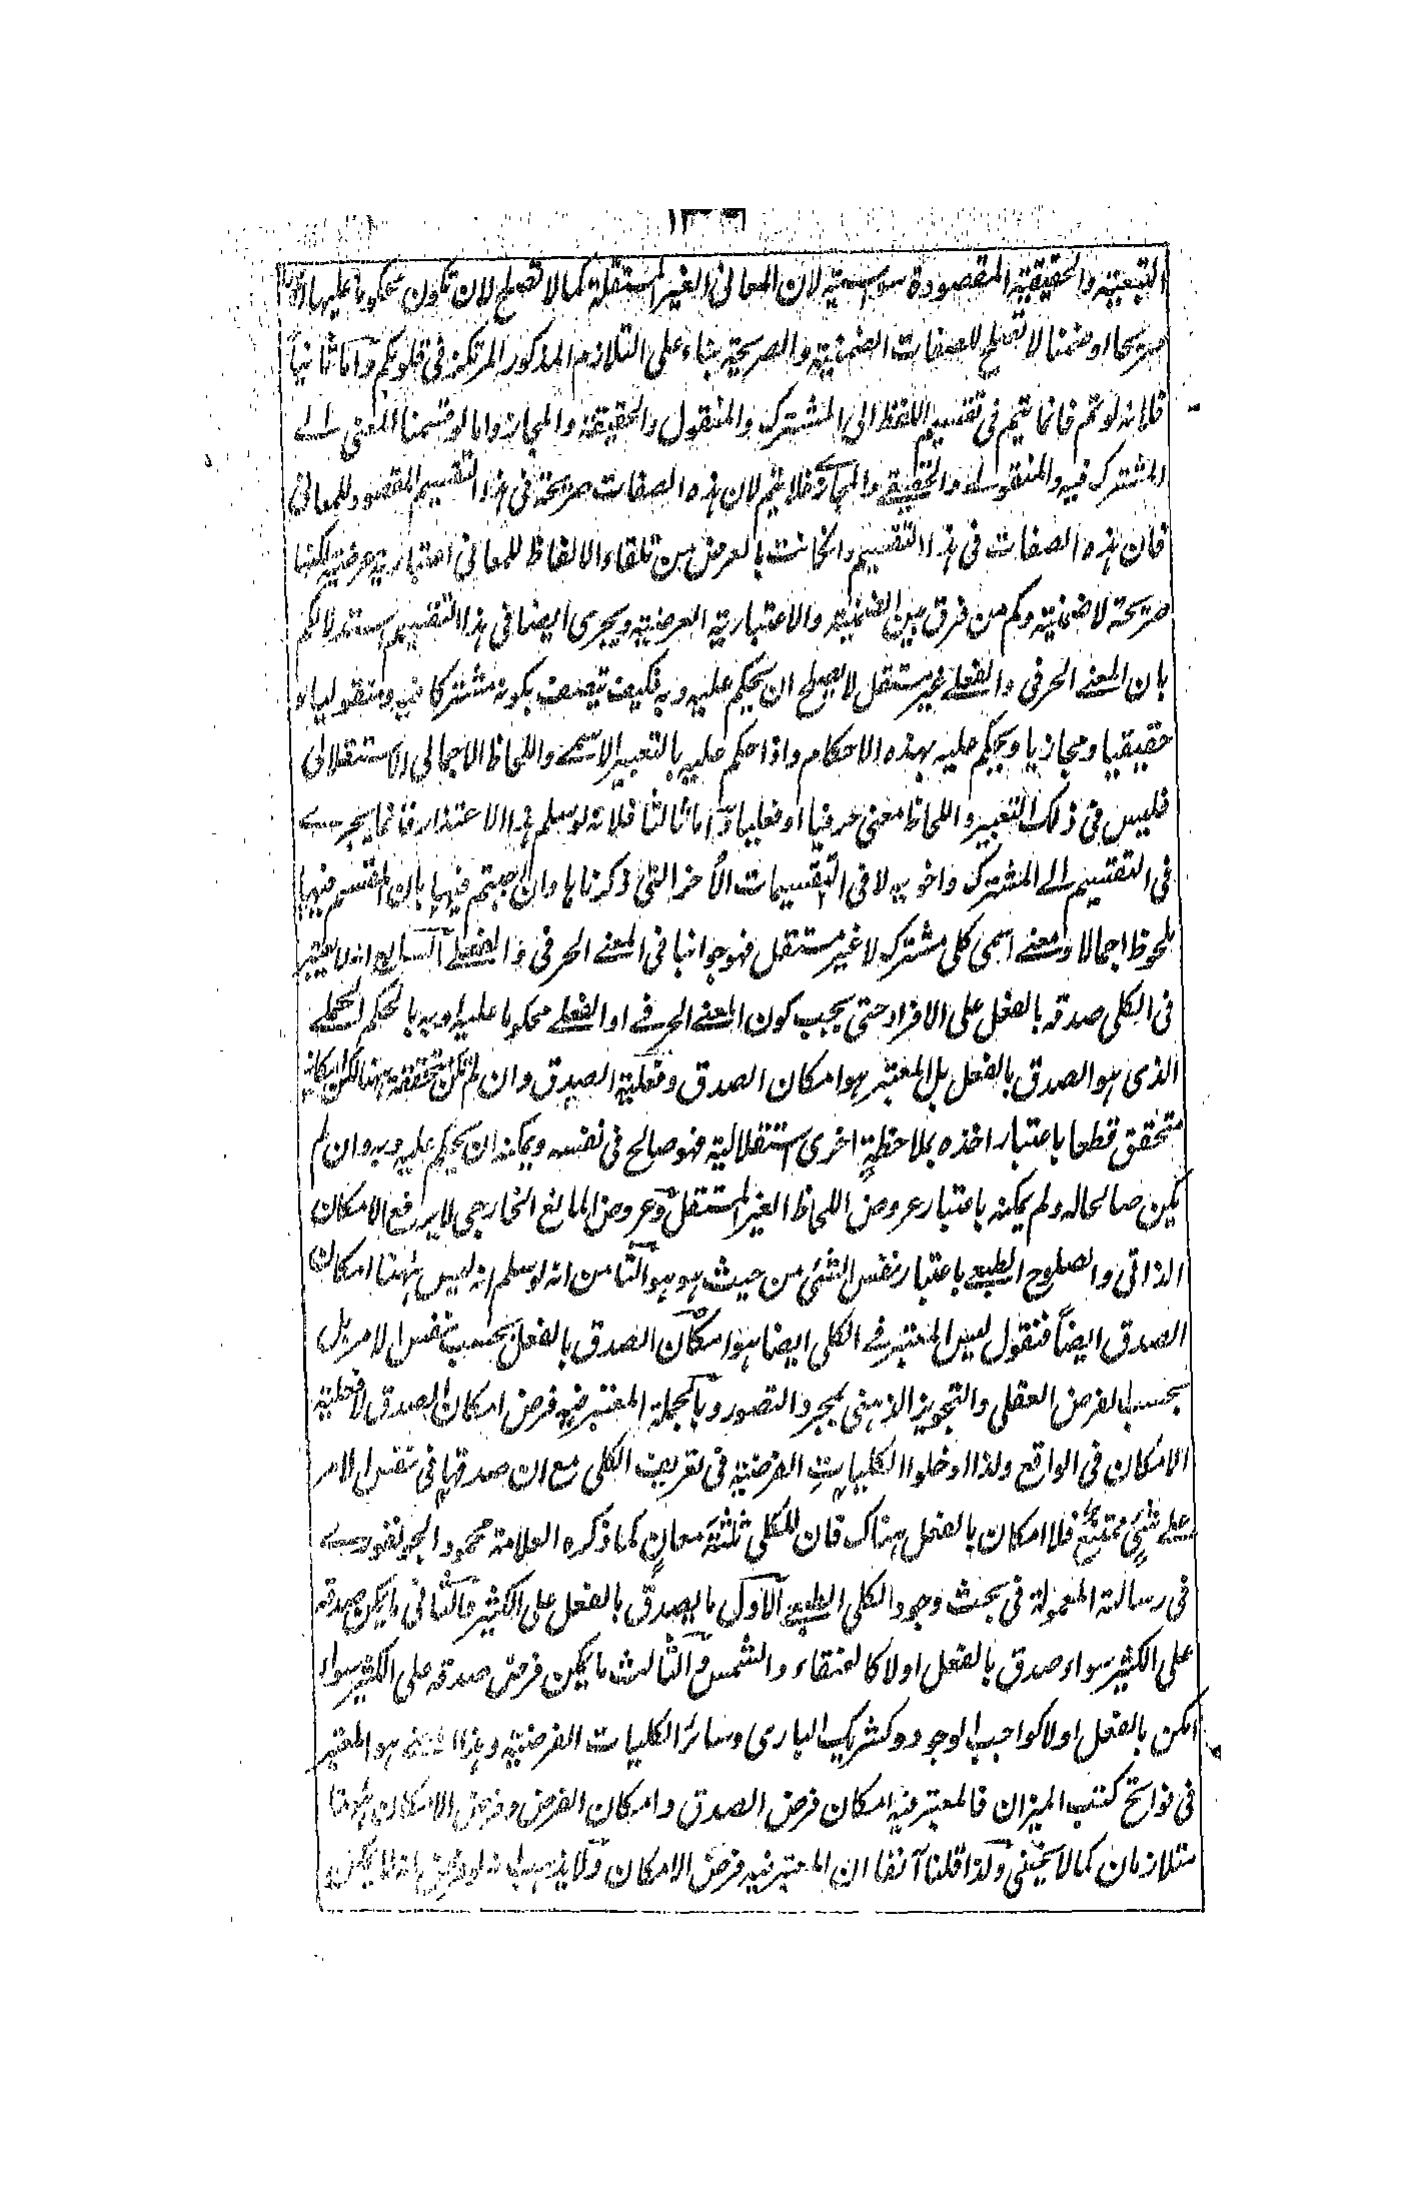 التبعية والحقيقية المقصودة سواسية لان المعانى الغير المستقلة كما لا تصلح لان تكون محكوما عليها
صريحا او ضمنا لا تصلح للصفات الضمنية والصريحة بناء على التلازم المذكور المرتكز فى قلوبكم وآما ثانياً
فلانه لو تم فانما يتم فى تقسيم اللفظ الى المشترك والمنقول والحقيقة والمجاز واما لو قسمنا المعنى الے
المشترك فيه والمنقول اليه والحقيقے والمجازے فلا يتم لان هذه الصفات صريحة فى هذا التقسيم المقصود للمعانى
فان هذه الصفات فى هذا التقسيم وانكانت بالعرض من تلقاء الالفاظ للمعانى اعتبارية عرضية لكنها
صريحة لا ضمنية وكم من فرق بين الضمنية والاعتبارية العرضية ويجرى ايضا فى هذا التقسيم استدلالكم
بان المعنے الحرفى والفعلے غير مستقل لا يصلح ان يحكم عليه وبه فكيف تصف بكونه مشتركا فيه ومنقولا اليه او
حقيقيا ومجازيا ويحكم عليه بهذه الاحكام واذا حكم عليه بالتعبير الاسمے واللحاظ الاجمالى الاستقلالى
فليس فى ذلك التعبير واللحاظ معنى حرفيا او فعليا وآما ثالثا فلانه لو سلم هذا الاعتذار فانما يجرے
فى التقسيم الے المشترك واخويه لا فى التقسيمات الأخر التى ذكرناها وان اجبتم فيها بان المقسم فيها
ملحوظ اجمالا ومعنے اسمى كلى مشترك لا غير مستقل فهو جوابنا فى المعنے الحرفى والفعلے آلسابع انه لا يعتبر
فى الكلى صدقه بالفعل على الافراد حتى يجب كون المعنے الحرفے او الفعلے محكوما عليه او به بالحكم الحملے
الذى هو الصدق بالفعل بل المعتبر هو امكان الصدق وفعلية الصدق وان لم تكن متحققة ههنا لكن امكانه
متحقق قطعا باعتبار اخذه بملاحظةٍ اخرى استقلالية فهو صالح فى نفسه ويمكنه ان يحكم عليه وبه وان لم
يكن صالحا له ولم يمكنه باعتبار عروض اللحاظ الغير المستقل وعروض المانع الخارجى لا يرفع الامكان
الذاتى والصلوح الطبعے باعتبار نفس الشئ من حيث هو هو آلثامن انه لو سلم انه ليس ههنا امكان
الصدق ايضاً فنقول ليس المعتبر فے الكلى ايضا هو امكان الصدق بالفعل بحسب نفس الامر بل
بحسب الفرض العقلى والتجويز الذهنى بمجرد التصور وبآلجملة المعتبر فيه فرض امكان الصدق لا فعلية
الامكان فى الواقع ولذا ادخلوا الكلياتِ الفرضية فى تعريف الكلى مع ان صدقها فى نفس الامر
علے شئٍ ممتنعٌ فلا امكان بالفعل هناك فان للكلى ثلثةَ معانٍ كما ذكره العلامة محمود الجونفورے
فى رسالته المعمولة فى بحث وجود الكلى الطبعے آلاول ما يصدق بالفعل على الكثير وآلثانى ما يمكن صدقه
على الكثير سواء صدق بالفعل او لا كالعنقاء والشمس وآلثالث ما يمكن فرض صدقه على الكثير سواء
امكن بالفعل او لا كواجب الوجود وكشريك البارى وسائر الكليات الفرضية وهذا المعنے هو المعتبر
فى فواتح كتب الميزان فالمعتبر فيه امكان فرض الصدق وامكان الفرض وفرض الامكان ههنا
متلازمان كما لا يخفى ولذا قلنا آنفا ان المعتبر فيه فرض الامكان ولا